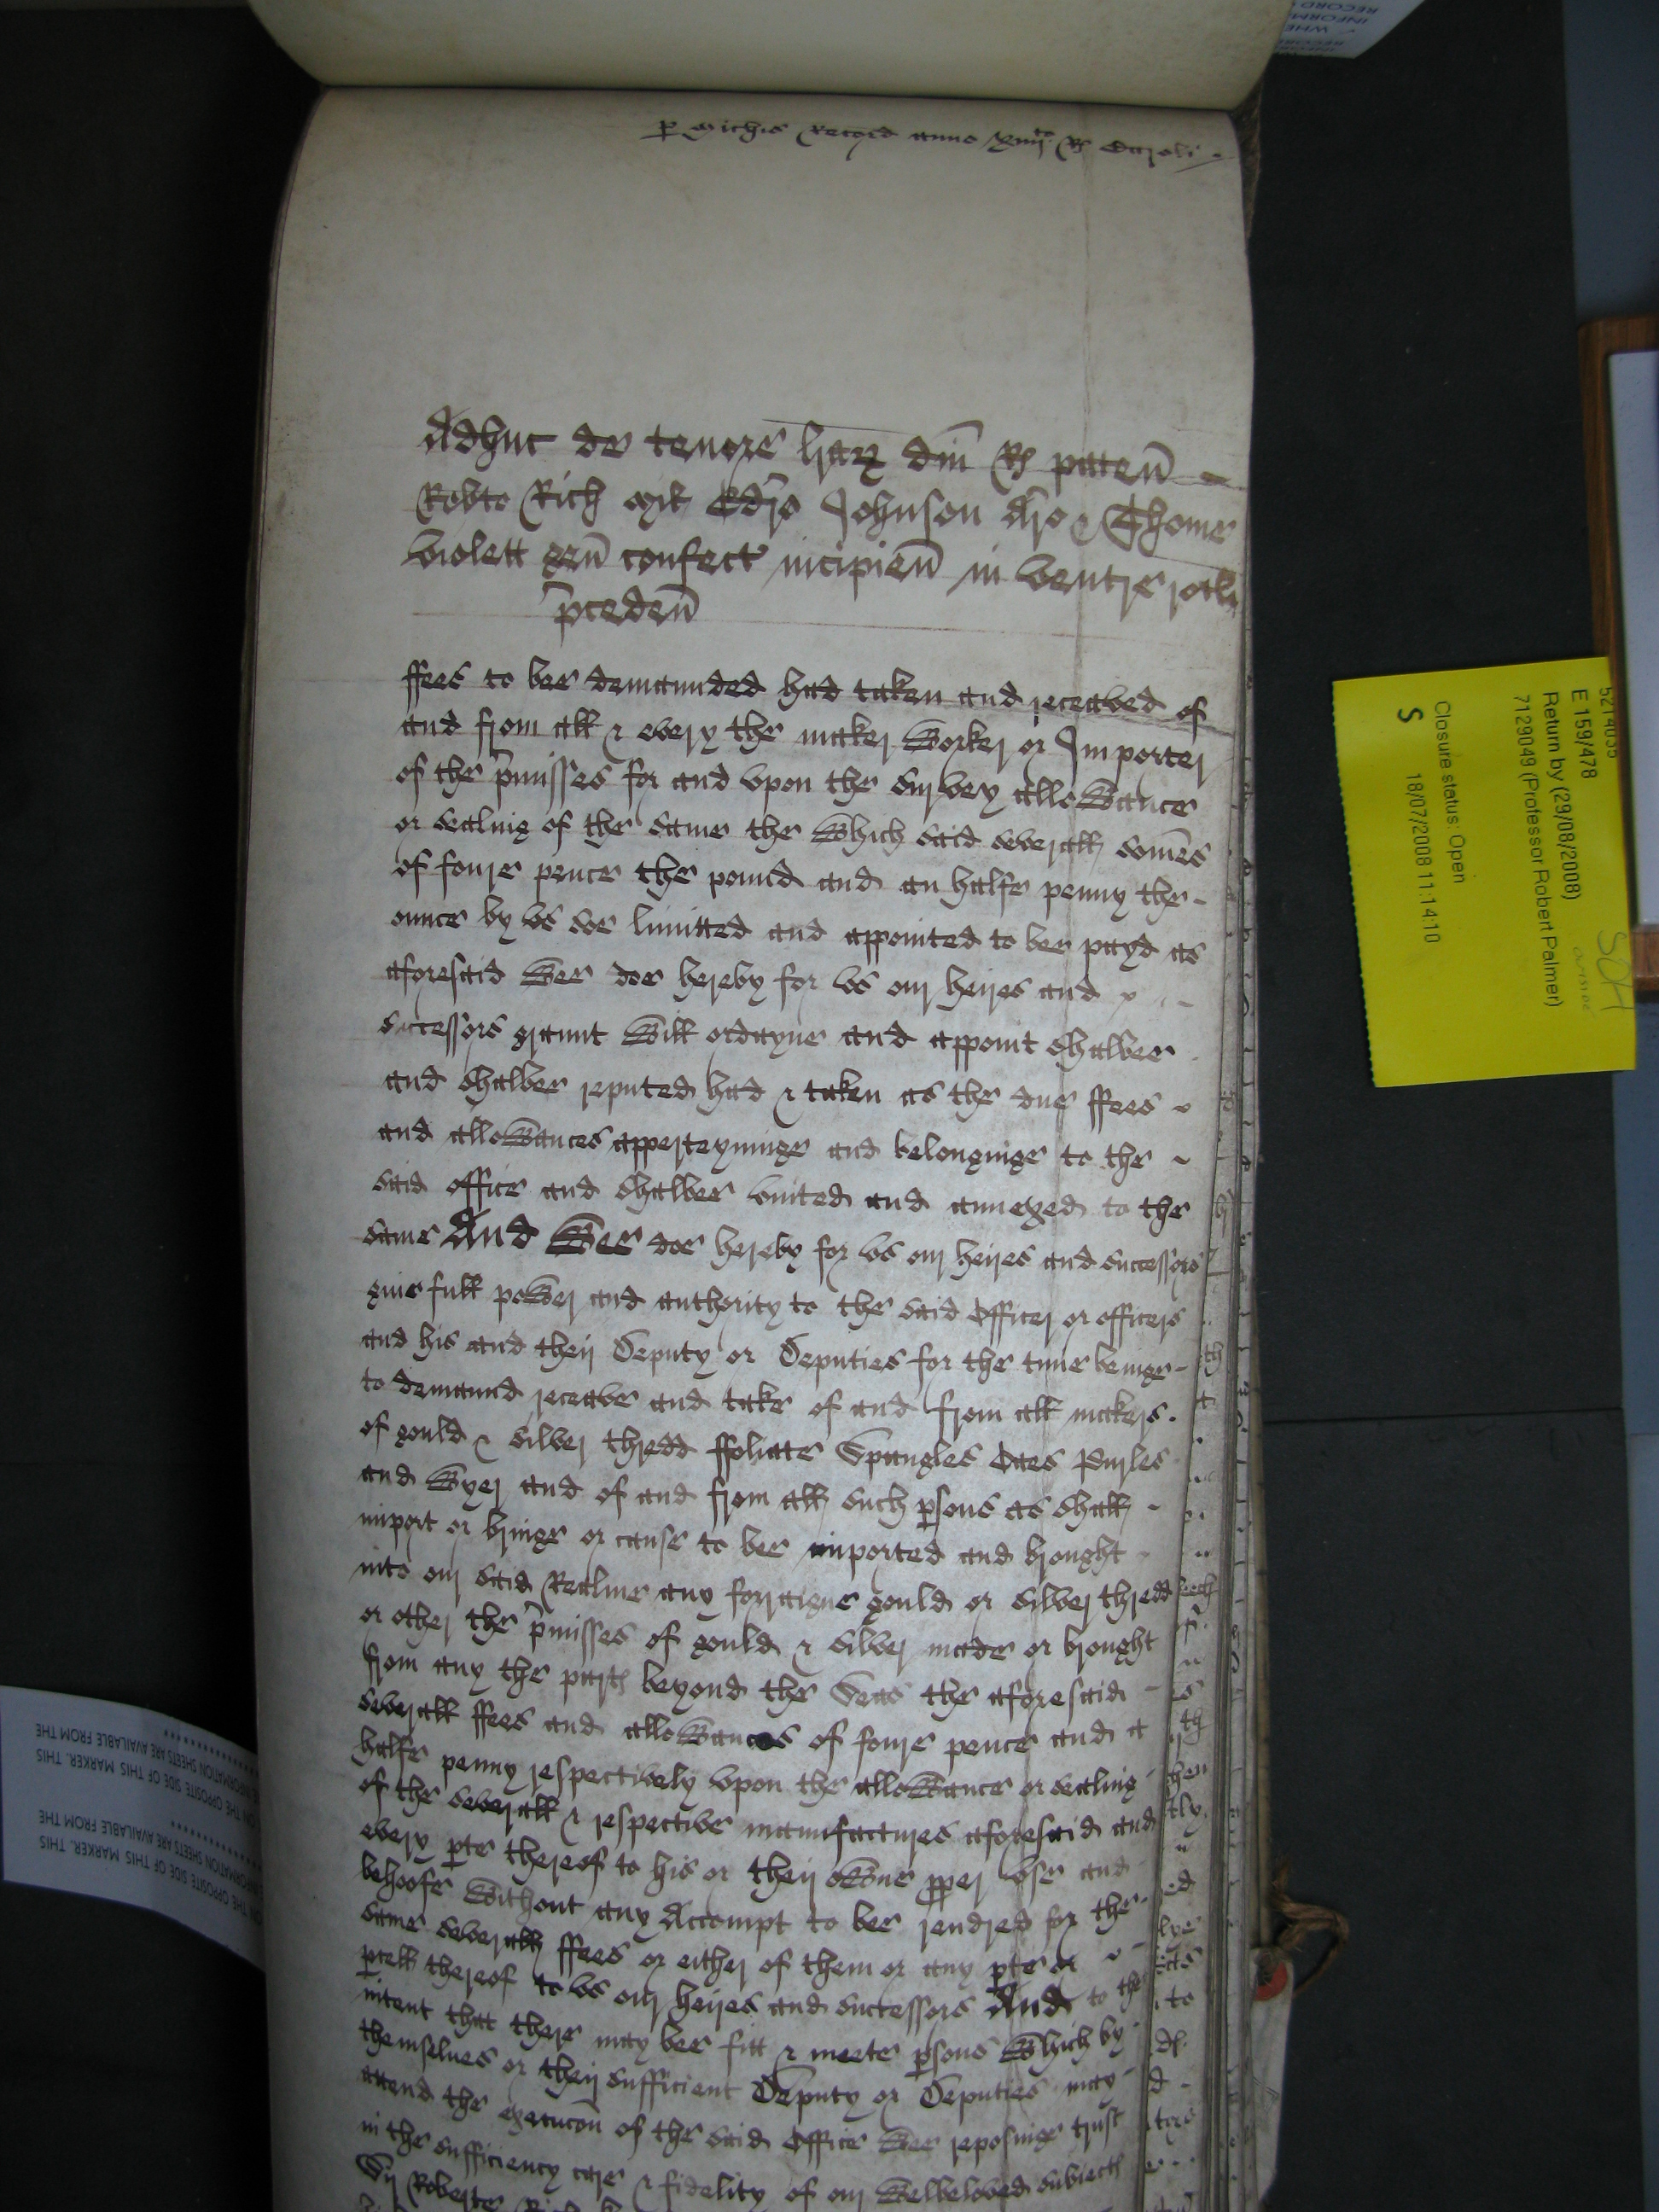 p Michis Record anno xiiijto Rs Caroli
Adhuc de tenore lrarz dni Rs paten
Robto Rich mil Edro Johnson Aro & Thome
violett gen confect incipien in ventre rotli
pceden
ffees to bee demaunded had taken and receaved of
and from all & every the maker Worker or Importer
of the pmisses for and vpon the survey allowance
or sealing of the same the which said severall somes
of foure pence the pound and an halfe penny the
ounce by vs soe limitted and appointed to bee payd as
aforesaid Wee doe hereby for vs our heires and
successors graunt Will ordayne and appoint shalbee
and shalbee reputed had & taken as the due ffees
and allowances apperteyninge and belonginge to the
said office and shalbee vnited and annexed to the
same And Wee doe hereby for vs our heires and successors
give full power and authority to the said Officer or officers
and his and their Deputy or Deputies for the time beinge
to demaund receave and take of and from all makers
of gould & silver thredd ffoliate Spangles Oaes Purles
and Wyer and of and from all such psons as shall
import or bringe or cause to bee imported and brought
into our said Realme any forraigne gould or silver thredd
or other the pmisses of gould & silver made or brought
from any the parts beyond the Seas the aforesaid
severall ffees and allowances of foure pence and a
halfe penny respectively vpon the allowance or sealing
of the severall & respective manufactures aforesaid and
every pte thereof to his or their owne pper vse and
behoofe without any Accompt to bee rendred for the
same severall ffees or either of them or any pte or
pcell thereof to vs our heires and successors And to the
intent that there may bee fitt & meete psons Which by
themselves or their sufficient Deputy or Deputies may
attend the execucon of the said Office Wee reposinge trust
in the sufficiency care & fidelity of our Welbeloved subiects
Sir Roberte Rich
5214035
E 159/478
Return by (29/08/2008)
7129049 (Professor Robert Palmer)
Closure status: Open
18/07/2008 11:14:10
S
SOH
ON THE OPPOSITE SIDE OF THIS MARKER. THIS
INFORMATION SHEETS ARE AVAILABLE FROM THE
ON THE OPPOSITE SIDE OF THIS MARKER. THIS
INFORMATION SHEETS ARE AVAILABLE FROM THE